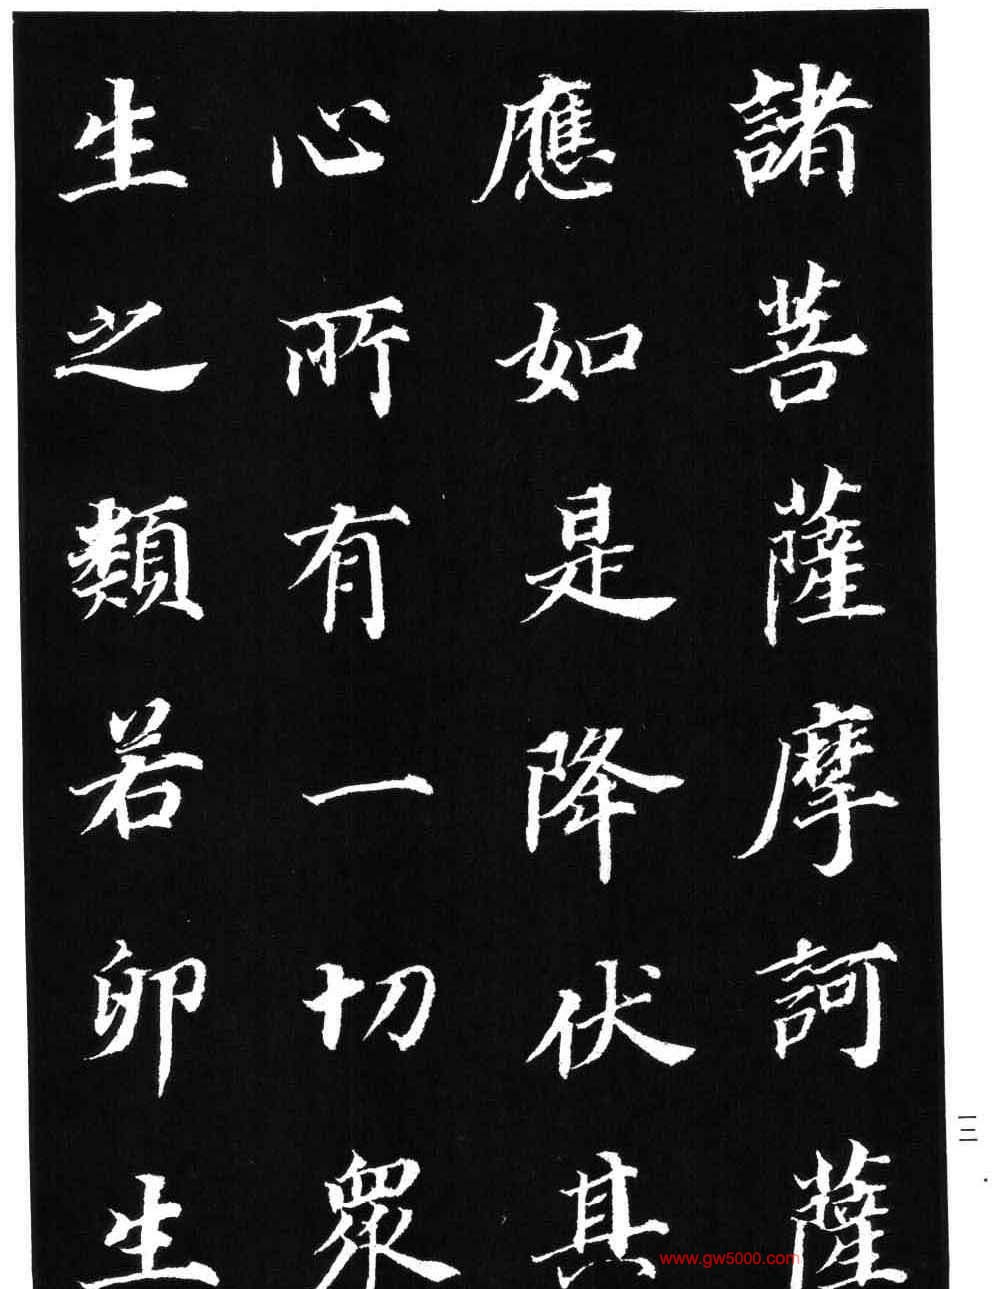 諸菩薩摩訶薩
應如是降伏其
心所有一切眾
生之類若卵生
一二
www.gw5000.com